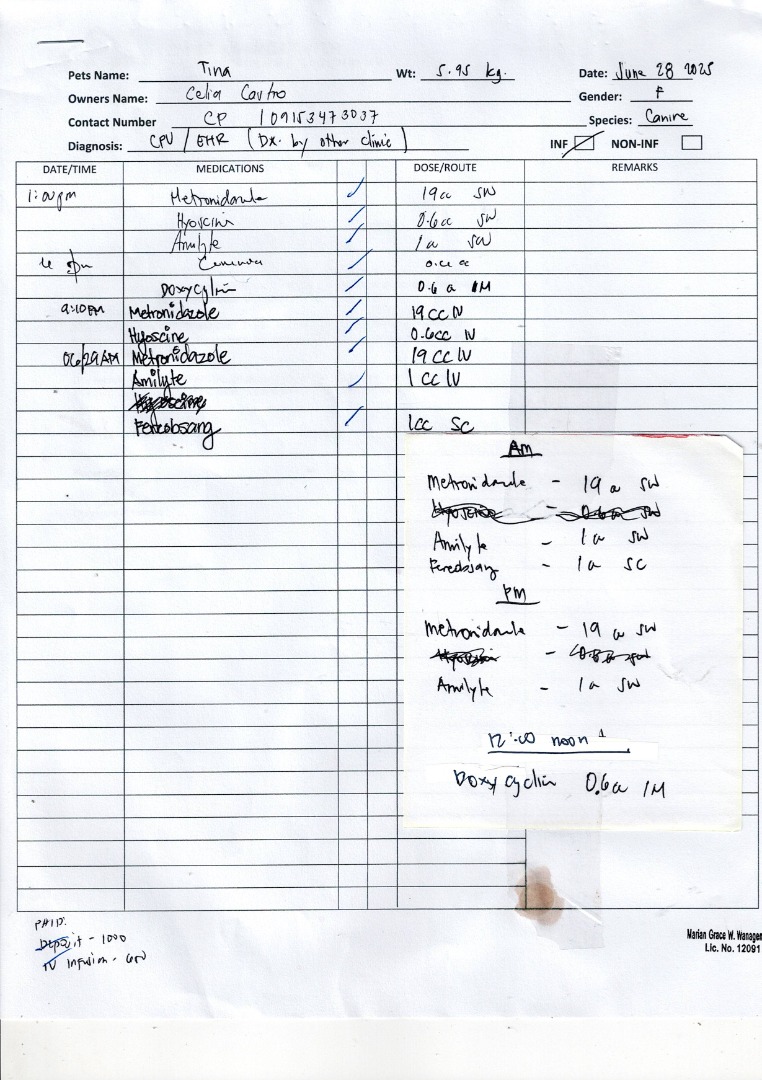 Pets Name: Tina Wt: 5.95 kg. Date: June 28 2025
Owners Name: Celia Castro Gender: F
Contact Number CP / 09153473037 Species: Canine
Diagnosis: CPV / EHR (Dx. by other clinic) INF NON-INF
DATE/TIME MEDICATIONS DOSE/ROUTE REMARKS
1:00pm Metronidazole 19cc
Hyoscine 0.6cc
Amilyte 1cc
Doxycyclin 0.6cc IM
9:10PM Metronidazole 19cc IV
Hyoscine 0.6cc IV
06/29 AM Metronidazole 19cc IV
Amilyte 1cc IV
Hyoscine
1cc SC
AM
Metronidazole - 19cc
Hyoscine - 0.6cc
Amilyte - 1cc
- 1cc SC
PM
Metronidazole - 19cc
Amilyte - 1cc
12:00 noon
Doxycyclin 0.6cc IM
PAID:
Deposit - 1000
IV Infusion -
Marian Grace W.
Lic. No. 12091